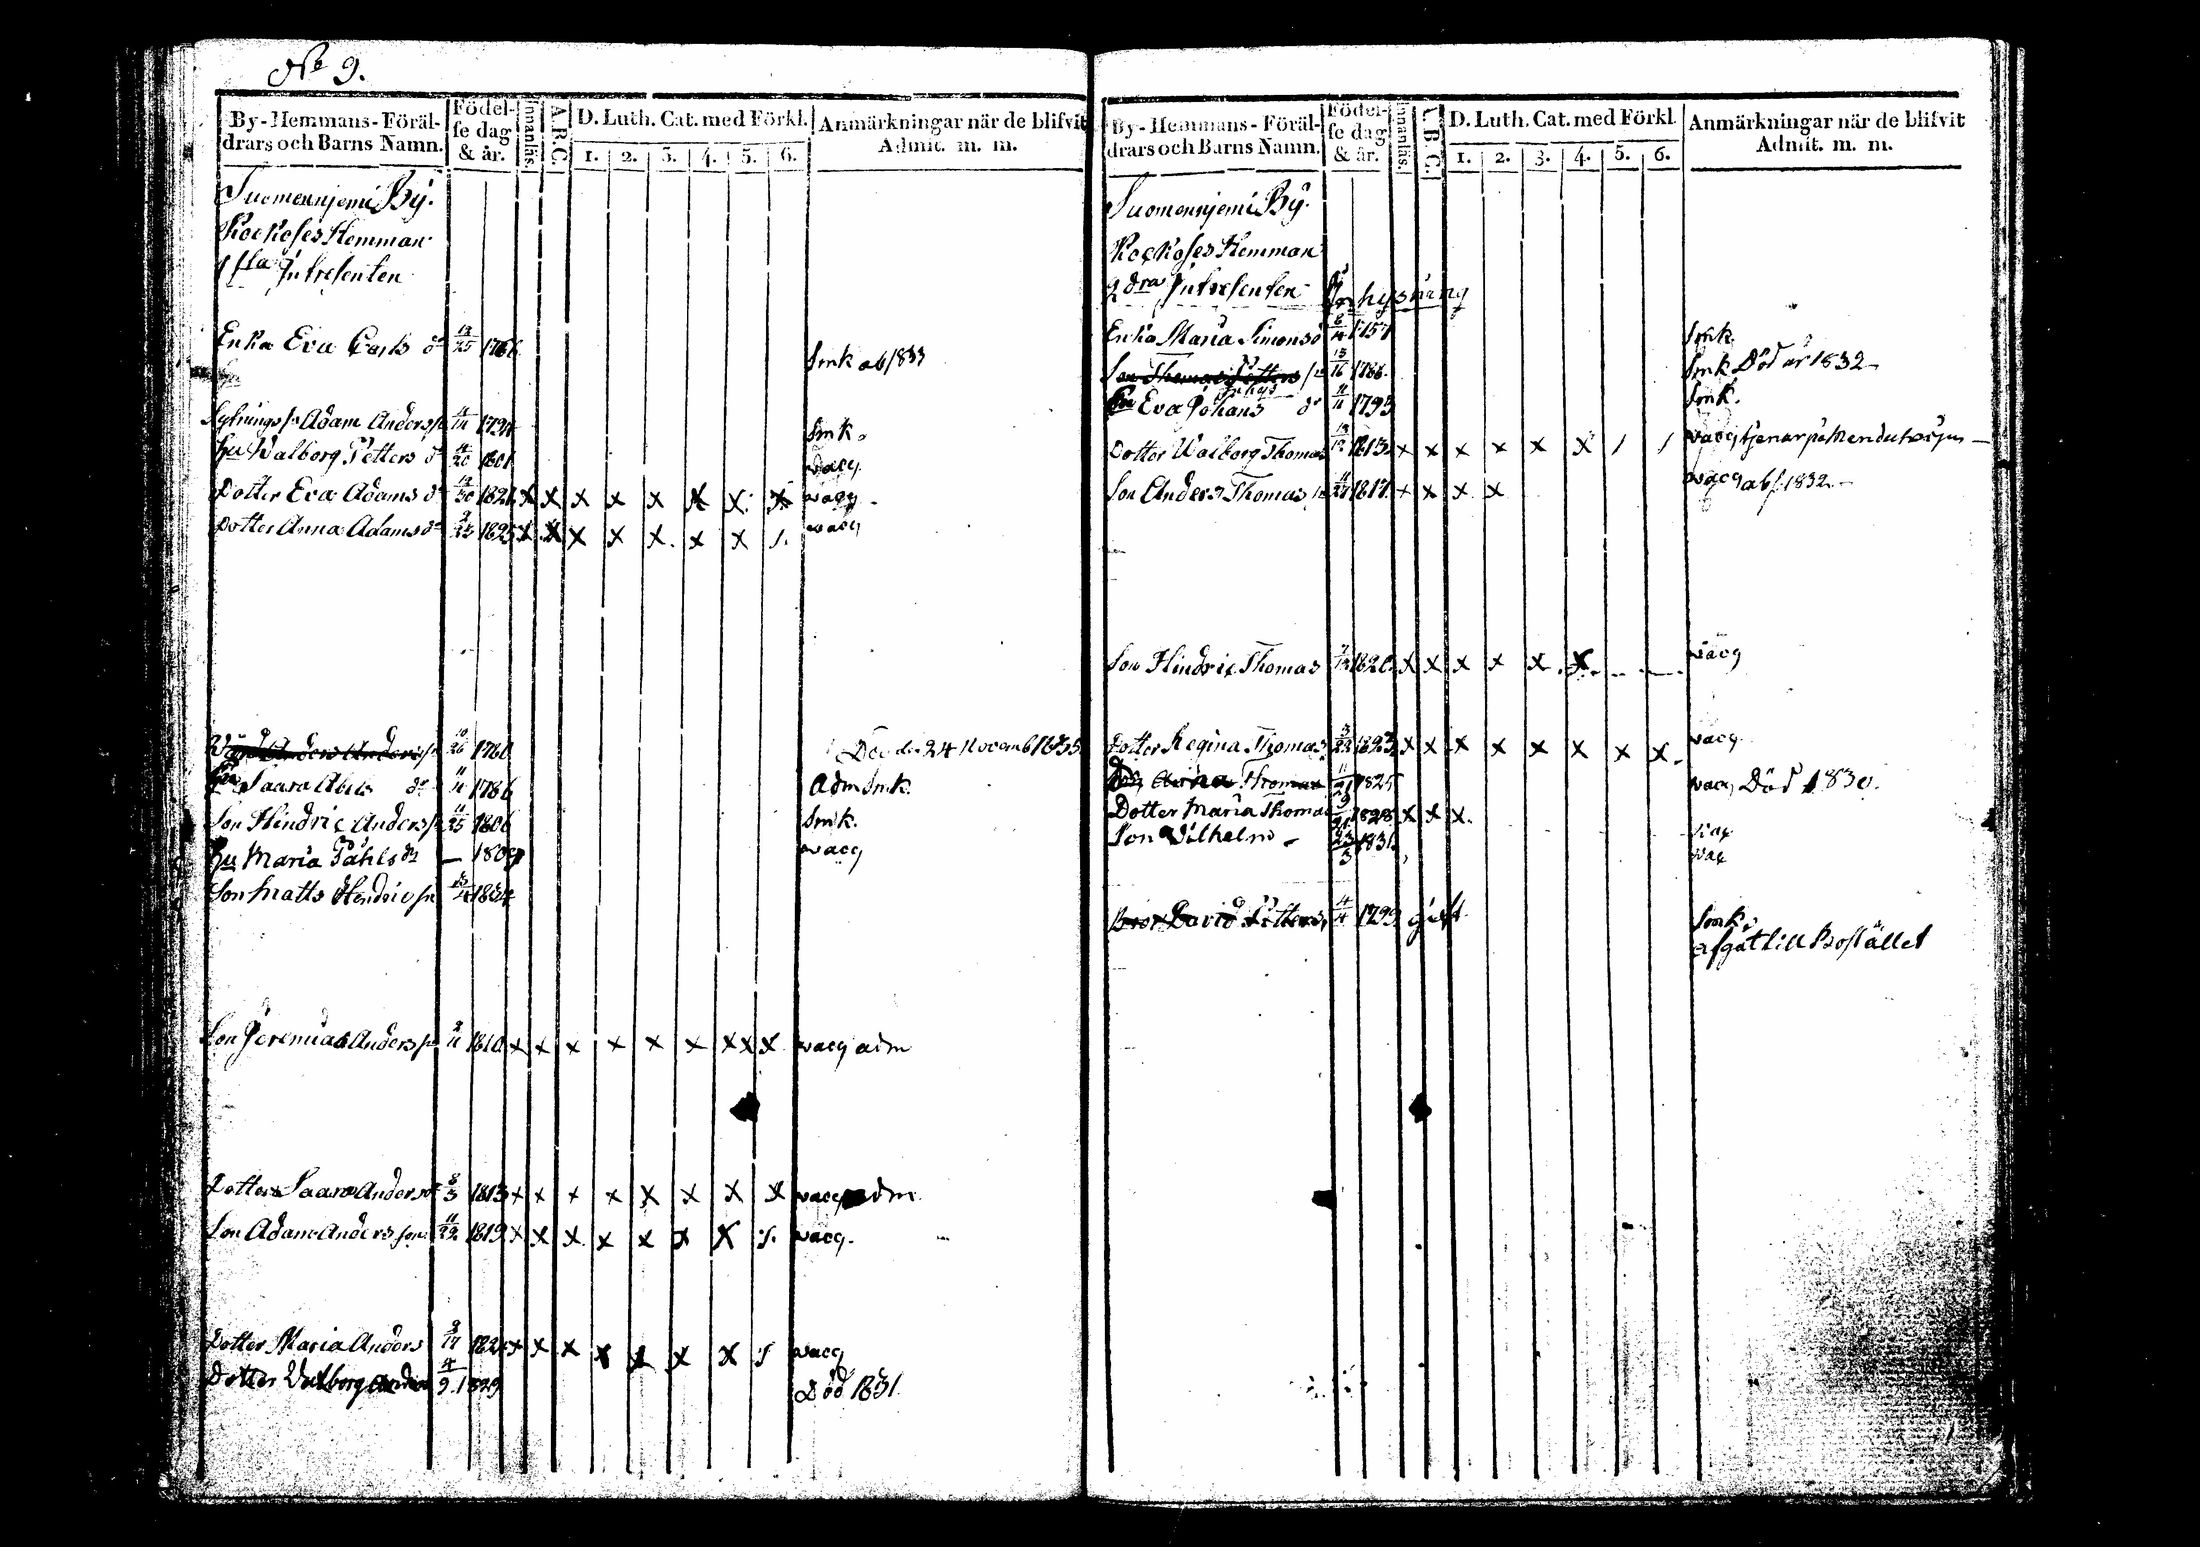 No 9.
By-Hemmans-Föräl-
drars och Barns Namn.
Födel-
se dag
& år.
Innanläs.
A.B.C.
D. Luth. Cat. med Förkl.
1. 2. 3. 4. 5. 6.
Anmärkningar när de blifvit
Admit. m. m.
Suomenniemi By.
Kockoses Hemman
1sta Intresenten
Enka Eva Carls dr 1766 Smk abs 1833
Adam Anders sn Smk.
Hu Walborg Petters dr 4/20 1801 vacq.
Dotter Eva Adams dr x x x x x x x x vacq
Dotter Anna Adams dr 1825 x x x x x x x 1. vacq
Anders Anders sn 10/26 1760 Död d. 24 Novemb 1835
Saara Abels dr 1786 Adm Smk.
Son Hindric Anders sn 1806 Smk.
Hu Maria Påhls dr — 1809 vacq
Son Matts Hendric sn 1834
Son Jeremias Anders sn 1810 x x x x x x x x x vacq adm
Dotter Saara Anders dr 8/3 1813 x x x x x x x x vacq adm
Son Adam Anders son 11/22 1819 x x x x x x x 1. vacq.
Dotter Maria Anders 9/17 x x x x x x x 1 vacq
Dotter Valborg Anders 4/9 1829 Död 1831.
By-Hemmans-Föräl-
drars och Barns Namn.
Födel-
se dag
& år.
Innanläs.
A.B.C.
D. Luth. Cat. med Förkl.
1. 2. 3. 4. 5. 6.
Anmärkningar när de blifvit
Admit. m. m.
Suomenniemi By.
Kockoses Hemman
2dra Intresenten Inhysning
Enka Maria Simons d 1757 Smk.
Son Thomas Petters sn 1786. Smk Död år 1832
Inhys
Eva Johans dr 1795 Smk.
Dotter Walborg Thomas 1813 x x x x x x 1 1 vacq tjenar på
Son Anders Thomas sn 11/27 1817 x x x x vacq abs. 1832.
Son Hindric Thomas 1820 x x x x x x vacq
Dotter Regina Thomas 3/23 1823 x x x x x x x x vacq
Thomas 11/21 1825 vacq Död 1830.
Dotter Maria Thomas 9/21 1828 x x x. vacq
Son Vilhelm 23/3 1831 vac
Bror David Petters 4/4 1799 gift Smk.
afgåt till Bostället